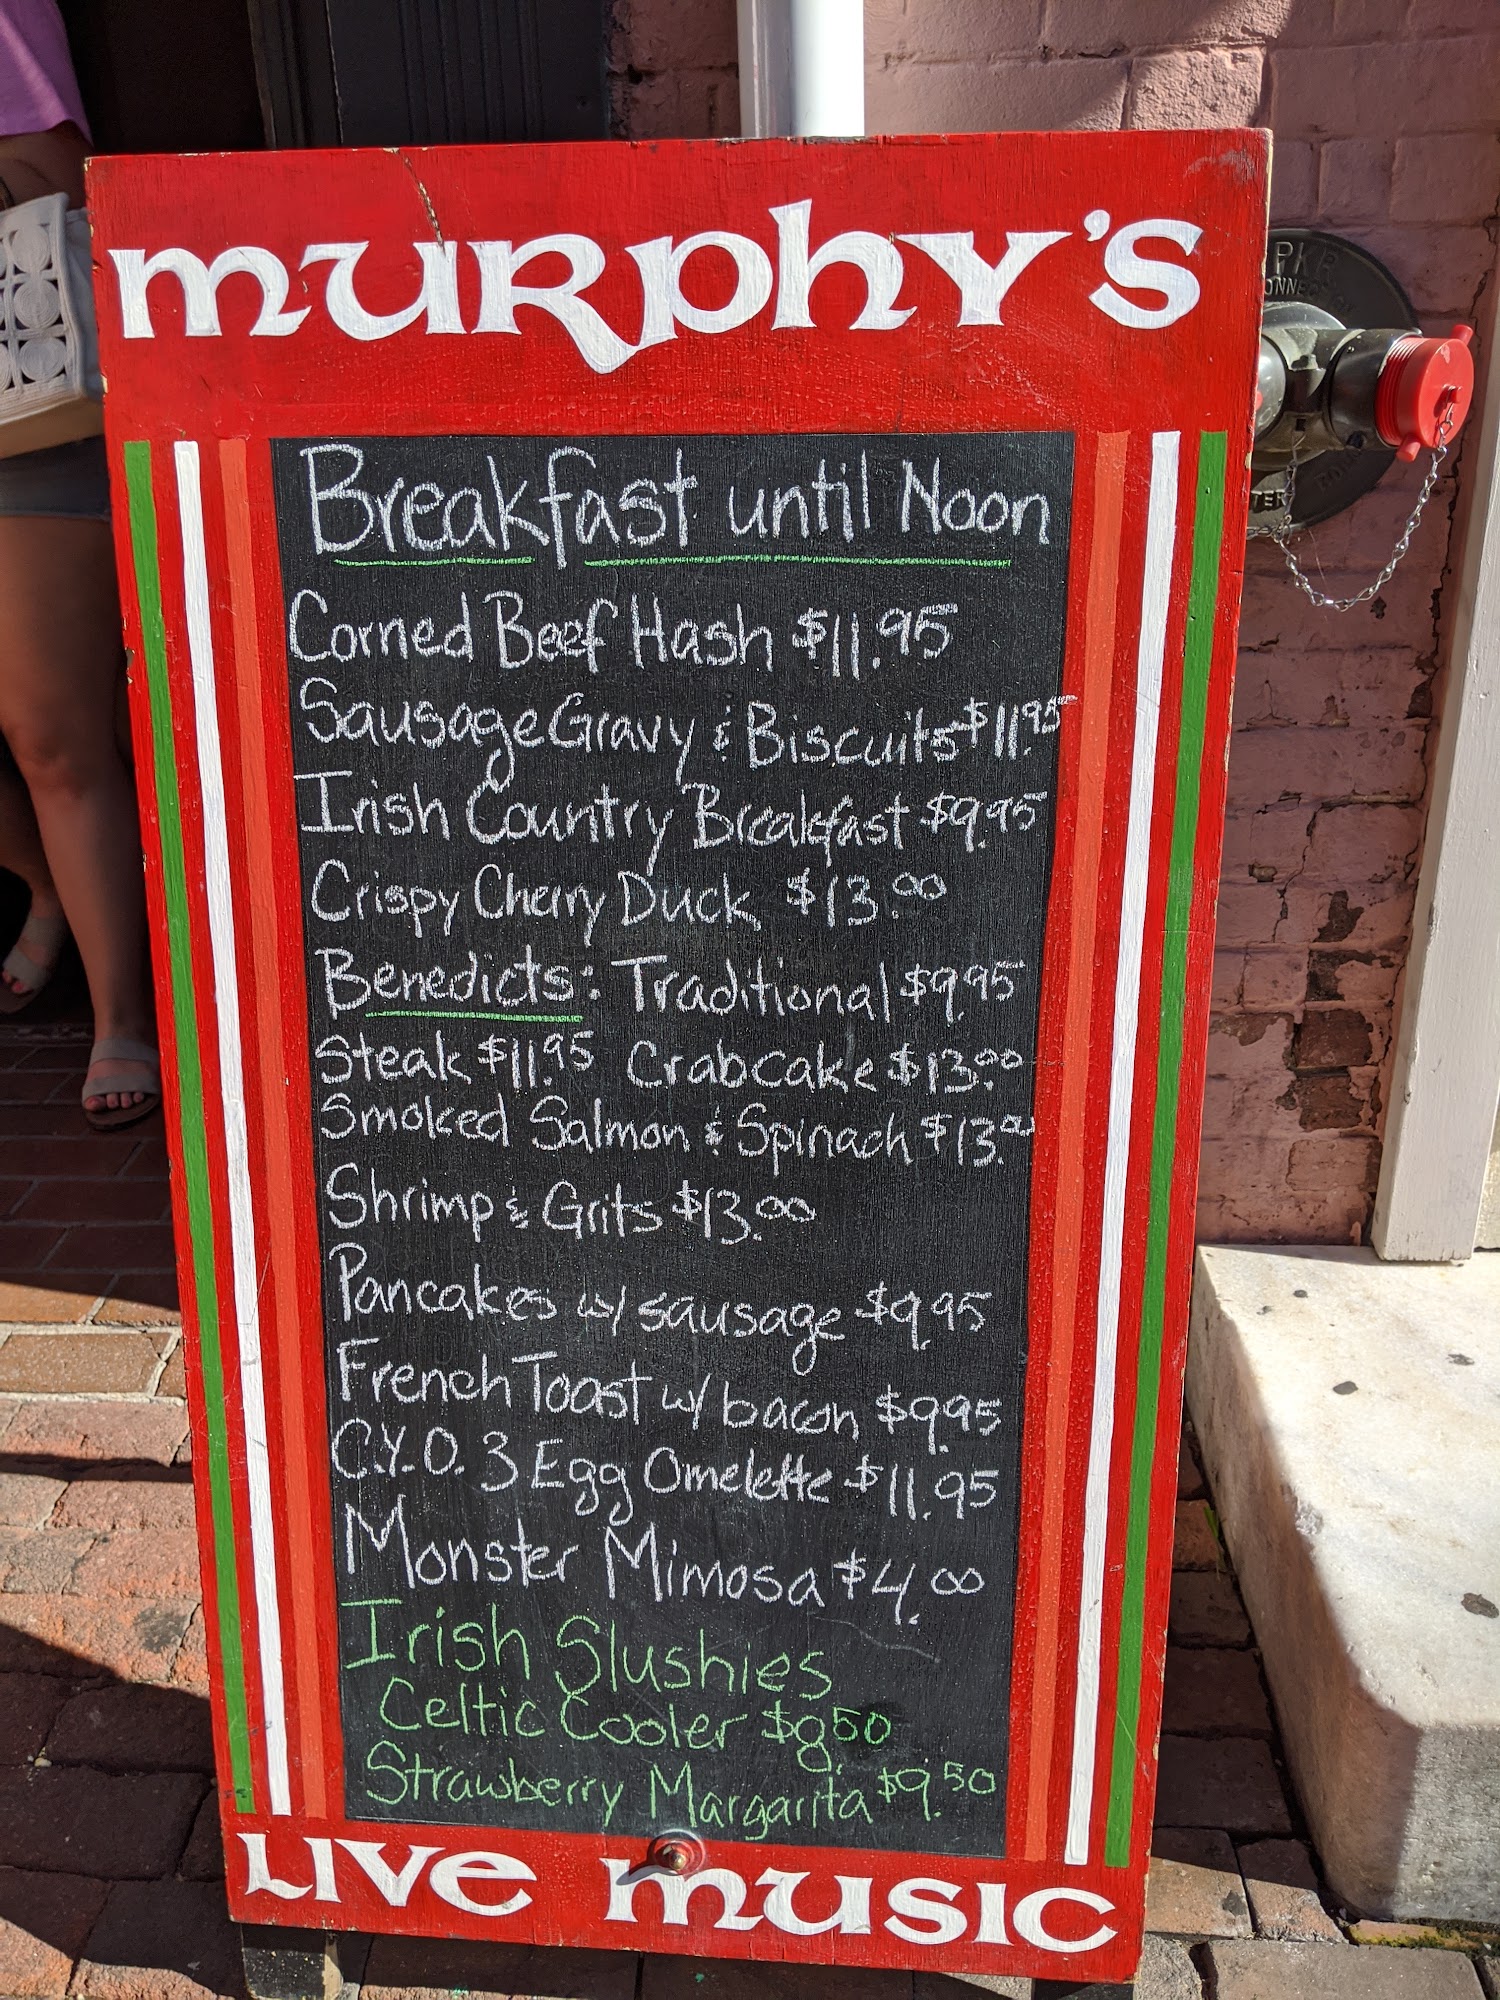 murphy's
Breakfast until Noon
Corned Beef Hash $11.95
Sausage Gravy & Biscuits $11.95
Irish Country Breakfast $9.95
Crispy Cherry Duck $13.00
Benedicts: Traditional $9.95
Steak $11.95 Crabcake $13.00
Smoked Salmon & Spinach $13.00
Shrimp & Grits $13.00
Pancakes w/ sausage $9.95
French Toast w/ bacon $9.95
C.Y.O. 3 Egg Omelette $11.95
Monster Mimosa $4.00
Irish Slushies
Celtic Cooler $8.50
Strawberry Margarita $9.50
LIVE MUSIC